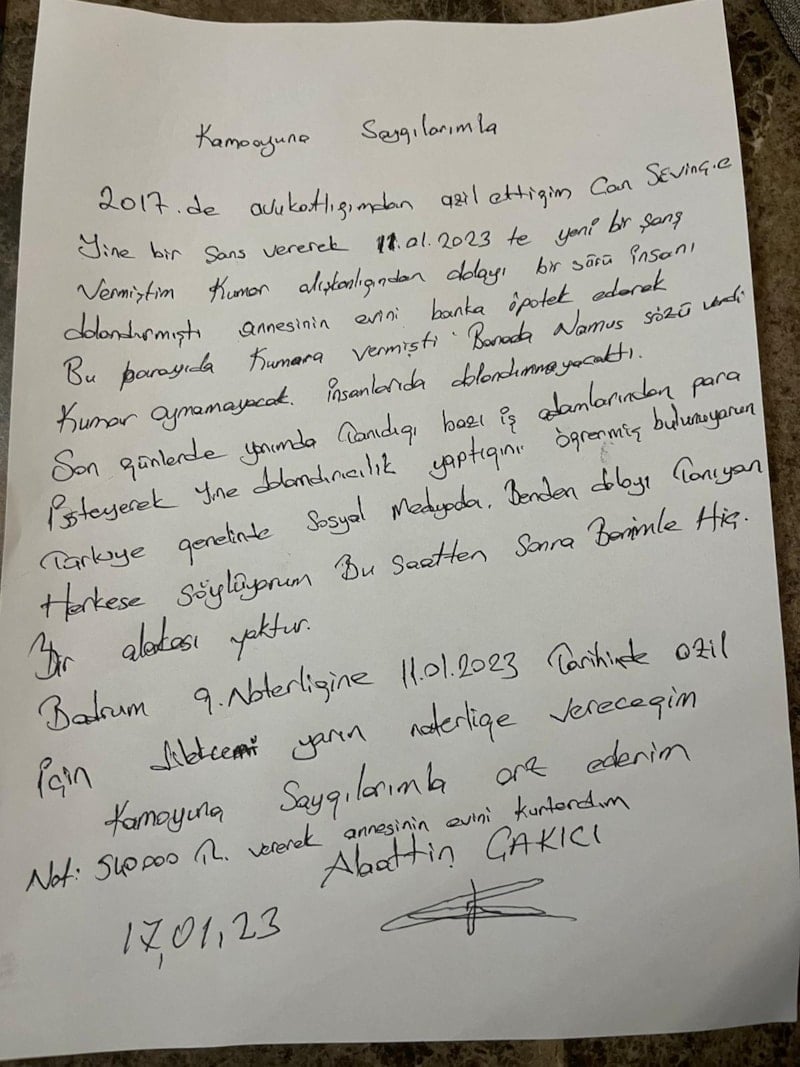 Kamooyuna Saygılarımla
2017.de avukatlığımdan azil ettiğim Can SEVİNÇ.e
Yine bir Sans vererek 11.01.2023 te yeni bir şans
Vermiştim Kumar alışkanlığından dolayı bir sürü insanı
dolandırmıştı annesinin evini banka ipotek ederek
Bu parayıda Kumara vermişti. Banada Namus sözü verdi
Kumar oynamayacak. İnsanlarıda dolandırmayacaktı.
Son günlerde yanımda tanıdığı bazı iş adamlarından para
İsteyerek Yine dolandırıcılık yaptığını öğrenmiş bulunuyorum
Türkiye genelinde Sosyal Medyada. Benden dolayı Tanıyan
Herkese söylüyorum Bu saatten Sonra Benimle Hiç.
Bir alakası yoktur.
Bodrum 9. Noterliğine 11.01.2023 Tarihinde azil
İçin yarın noterliğe Vereceğim
Kamoyuna Saygılarımla arz ederim
Not: 540.000 TL. vererek annesinin evini kurtardım
Alaattin ÇAKICI
17,01,23